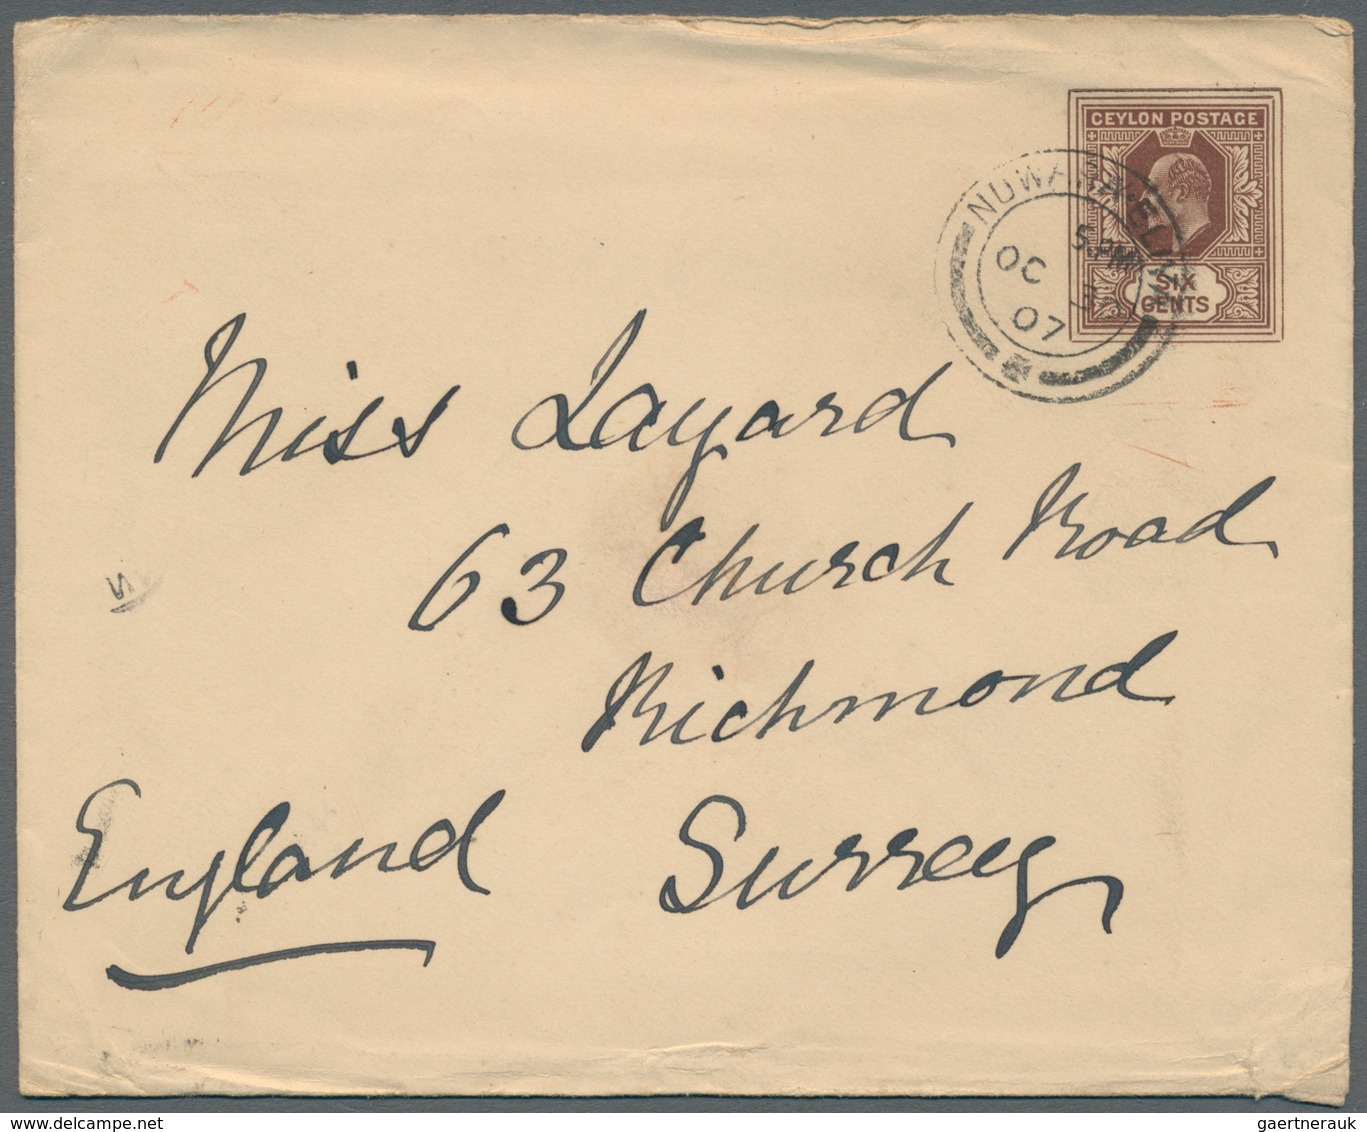 CEYLON POSTAGE
SIX
CENTS
NUWARA-ELIYA
5.PM
OC 30
07
Miss Layard
63 Church Road
Richmond
England Surrey
www.delcampe.net
gaertnerauk